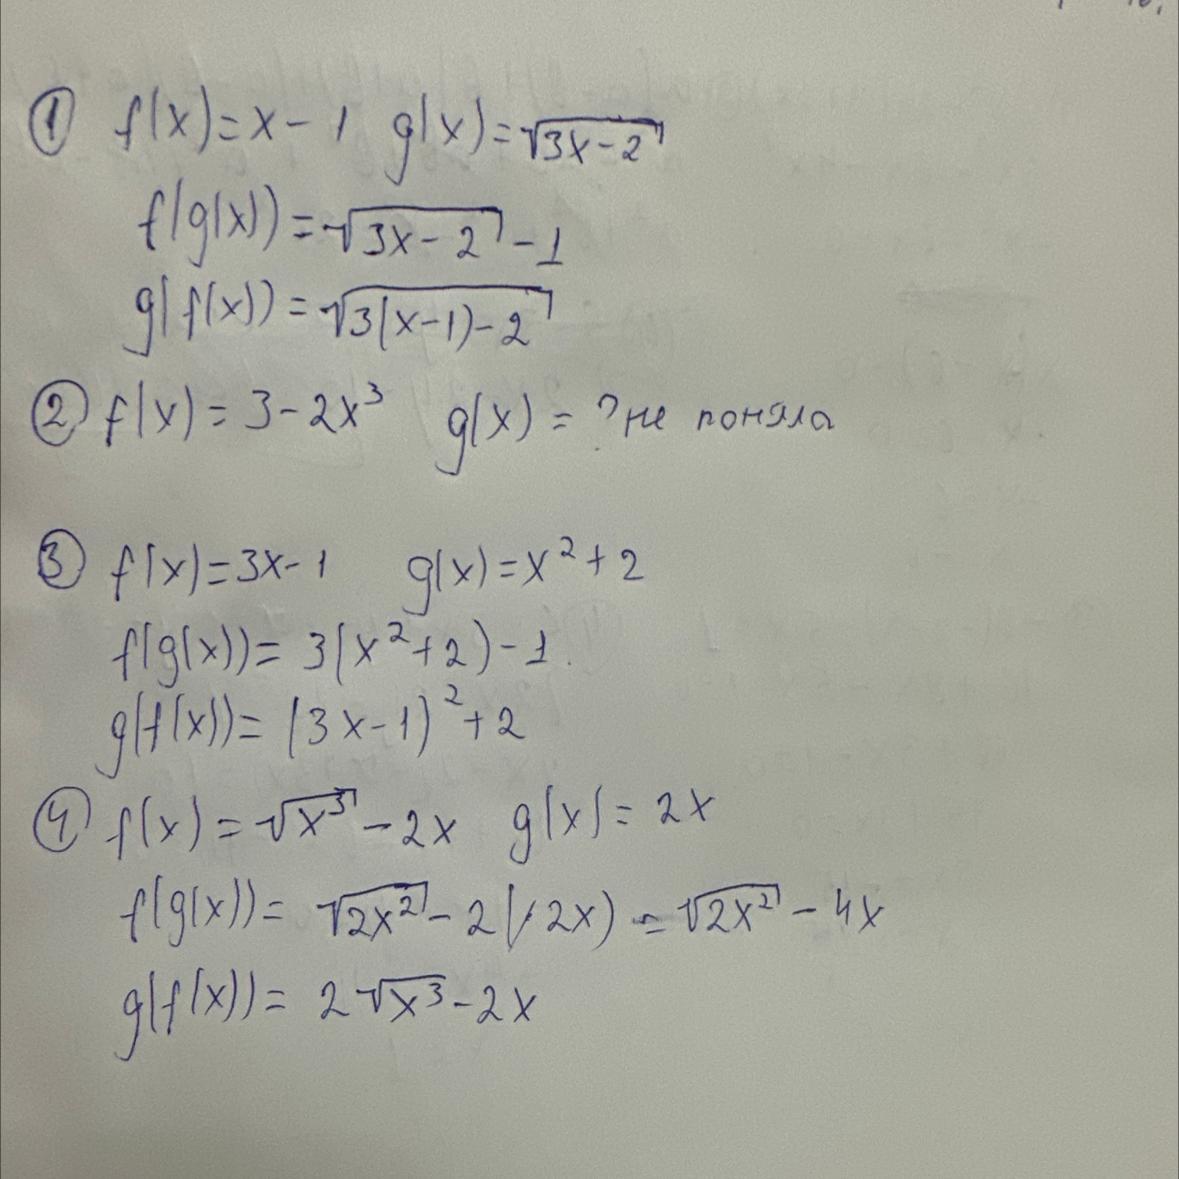 ① f(x)=x-1 g(x)=√(3x-2)
f(g(x))=√(3x-2)-1
g(f(x))=√(3(x-1)-2)
② f(x)=3-2x³ g(x)=? не поняла
③ f(x)=3x-1 g(x)=x²+2
f(g(x))=3(x²+2)-1.
g(f(x))=(3x-1)²+2
④ f(x)=√(x³)-2x g(x)=2x
f(g(x))=√(2x²)-2(2x)=√(2x²)-4x
g(f(x))=2√(x³)-2x